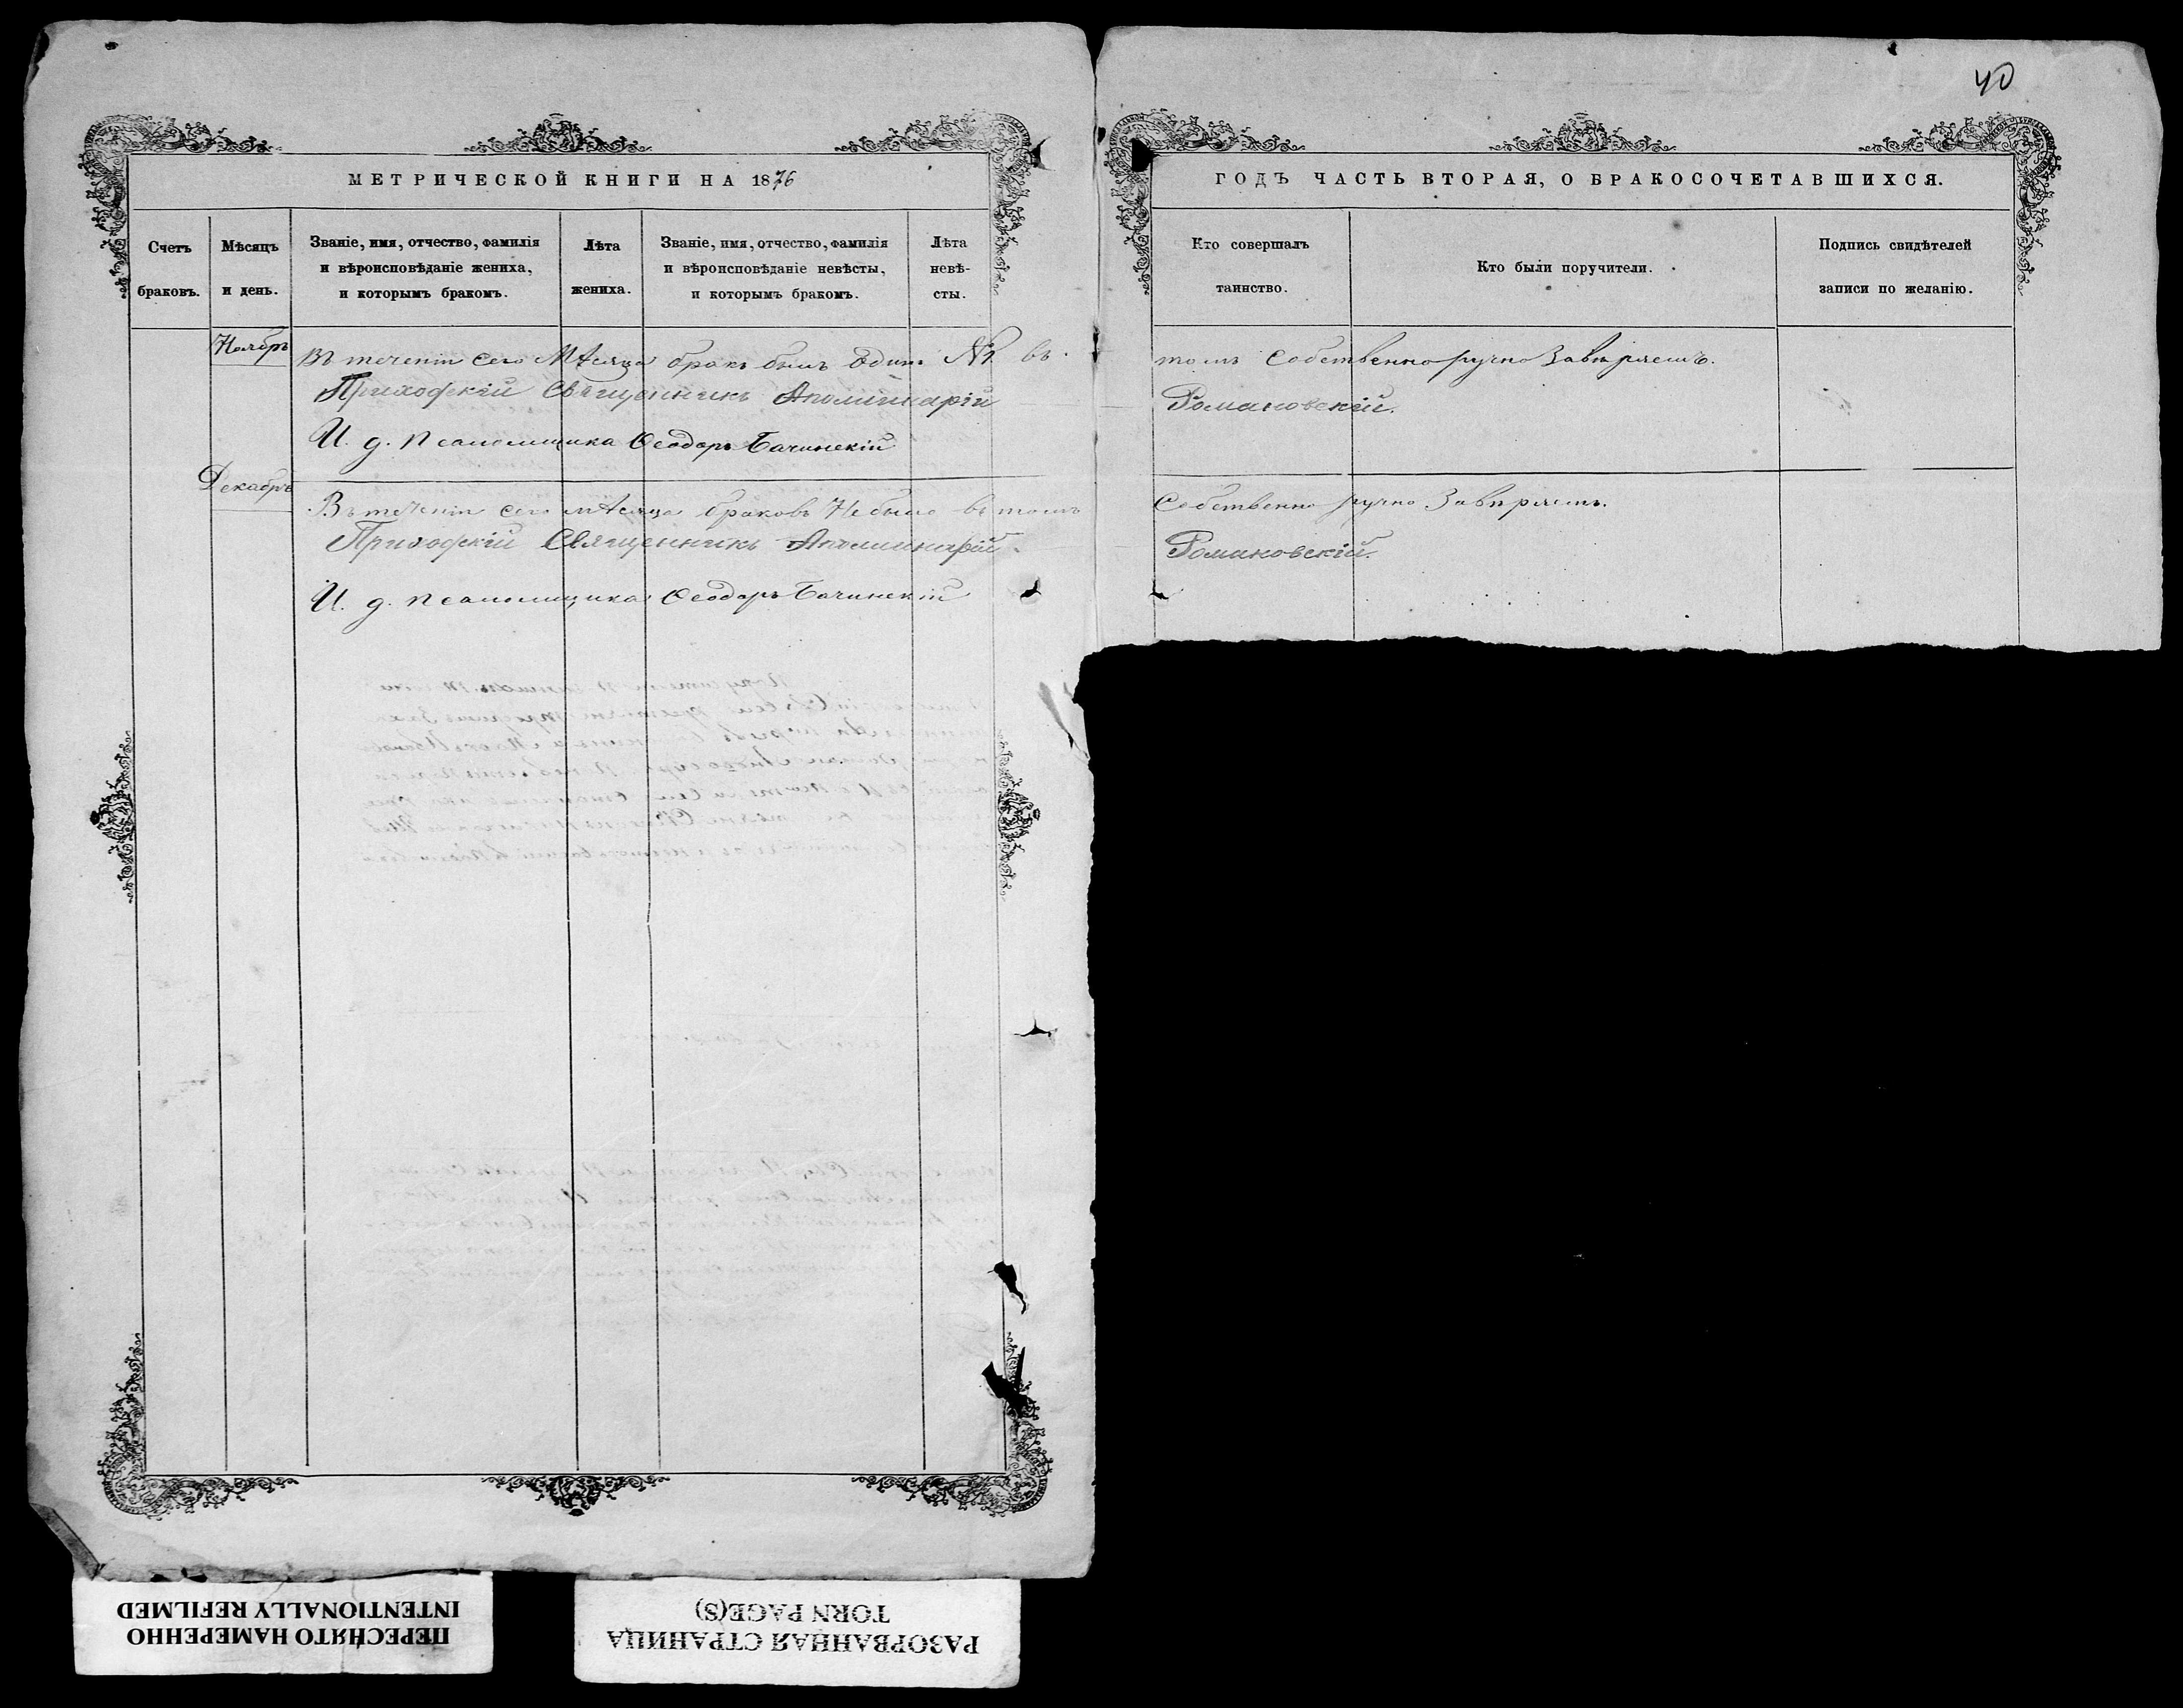 40
МЕТРИЧЕСКОЙ КНИГИ НА 1876
ГОДЪ ЧАСТЬ ВТОРАЯ, О БРАКОСОЧЕТАВШИХСЯ.
Счетъ
браковъ.
Мѣсяцъ
и день.
Званіе, имя, отчество, фамилія
и вѣроисповѣданіе жениха,
и которымъ бракомъ.
Лѣта
жениха.
Званіе, имя, отчество, фамилія
и вѣроисповѣданіе невѣсты,
и которымъ бракомъ.
Лѣта
невѣ-
сты.
Кто совершалъ
таинство.
Кто были поручители.
Подпись свидѣтелей
записи по желанію.
Ноябрь
Въ теченіи сего Мѣсяца бракъ былъ одинъ №1. въ томъ собственноручно Завѣряемъ.
Приходскій Священникъ Аполинарій Романовскій.
И. д. псаломщика Ѳеодоръ Бачинскій
Декабрь
Въ теченіи сего мѣсяца браковъ Небыло въ томъ Собственно ручно Завѣряемъ.
Приходскій Священникъ Аполинарій Романовскій.
И. д. псаломщика Ѳеодоръ Бачинскій
ПЕРЕСНЯТО НАМЕРЕННО
INTENTIONALLY REFILMED
РАЗОРВАННАЯ СТРАНИЦА
TORN PAGE(S)